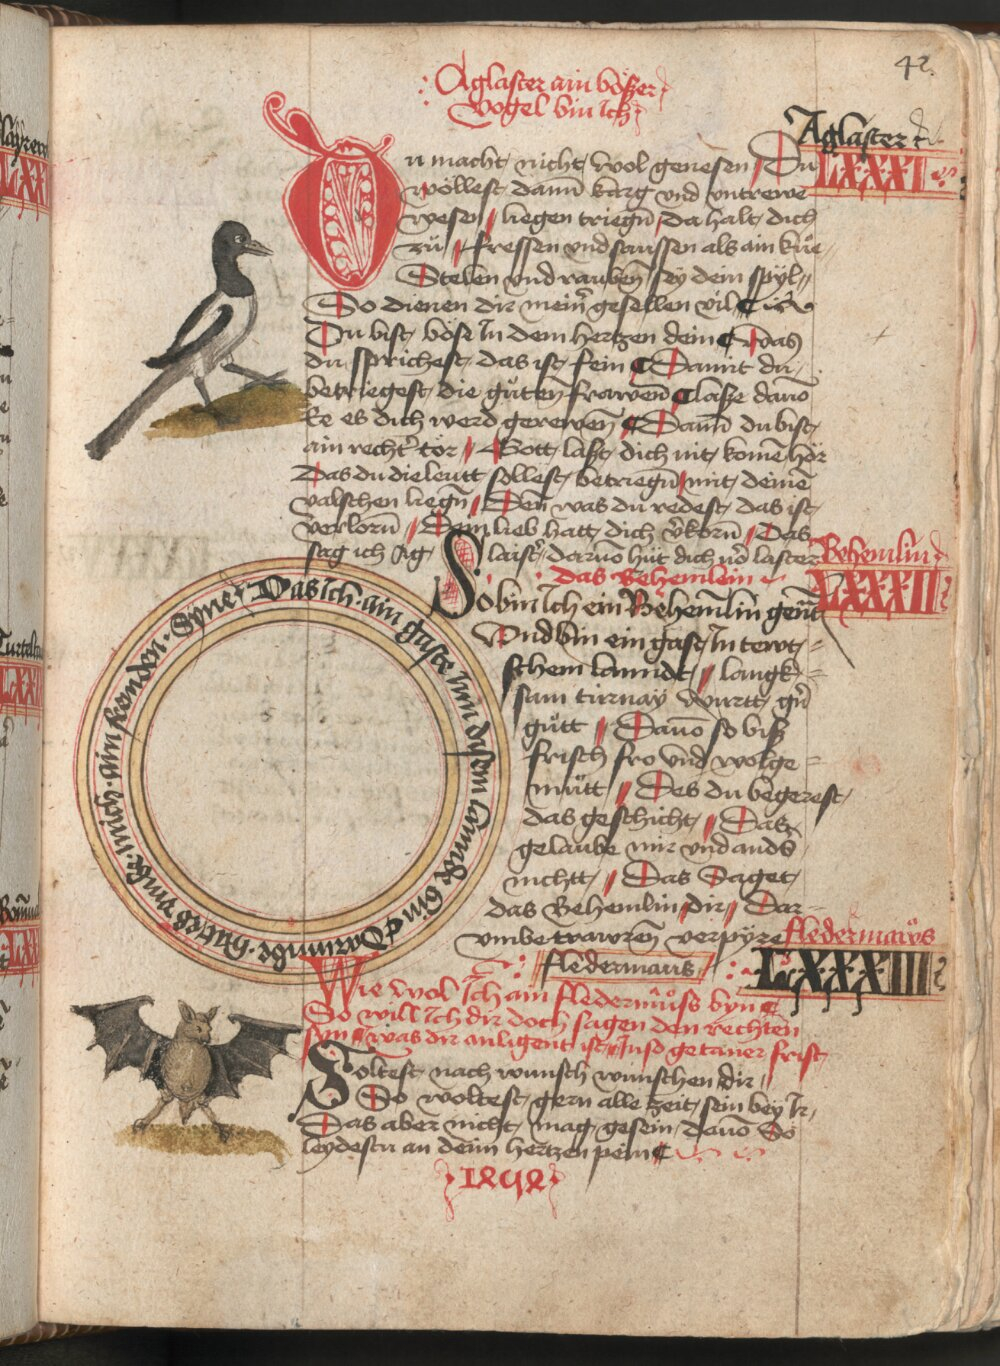 42.
Aglaster ain böszer
vogel bin Ich
Aglaster
LXXXI
Du macht nicht wol genesen Du
wöllest dann karg vnd vntrewe
wesen liegen triegn̄ da halt dich
zů fressen vnd saussen als ain kůe
Stelen vnd rauben̄ sey dein spÿl
So dienen dir mein̄ gesellen vil
Du bist böse In dem hertzen dein was
du sprichest das ist fein Damit du
betriegest die gůten frawen̄ lasze dauō
Ee es dich werd gerewen̄ Dann̄ du bist
ain recht tor Gott laszt dich nit komē hör
Das du die leutt sollest betriegn̄ mit deinē
valschen liegn̄ Den̄ was du redest das ist
verlorn̄ Dein lieb hatt dich v̄korn̄ Das
sag ich Ag laist darūo hüt dich vō laster
Behemlin
LXXXII
das Behemlein
So bin Ich ein Behemlin gen̄t
Vnd bin ein gast In tewt
schem lanndt langk
sam turnaÿ wurtt
gůtt Dauō so bisz
frisch fro vnd wolge
můtt Des du begerest
das geschicht Das
gelaube mir vnd and̄s
nichtt Das Saget
das Behemlin dir Dar
vmbe trawren̄ verpÿre
Das Ich ain gaste Inn disem lannde bin Darumbe hattes mich ain frömden
fledermaws
LXXXIII
fledermaus
Wie wol Ich ain fledermůss byn
So will Ich dir doch sagen den rechten
syn was dir anligent ist In so getaner frist
Soltest nach wunsch wünschen dir
So woltest gern alle zeit sein beÿ Ir
Das aber nicht mag gesein dauō So
leydestu an deim hertzen pein